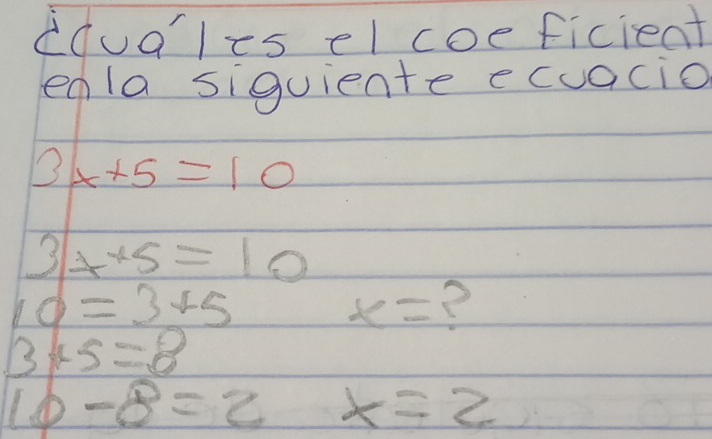 ¿cuál es el coeficient
en la siguiente ecuacio
3x+5=10
3x+5=10
10=3+5 x=?
3+5=8
10-8=2 x=2